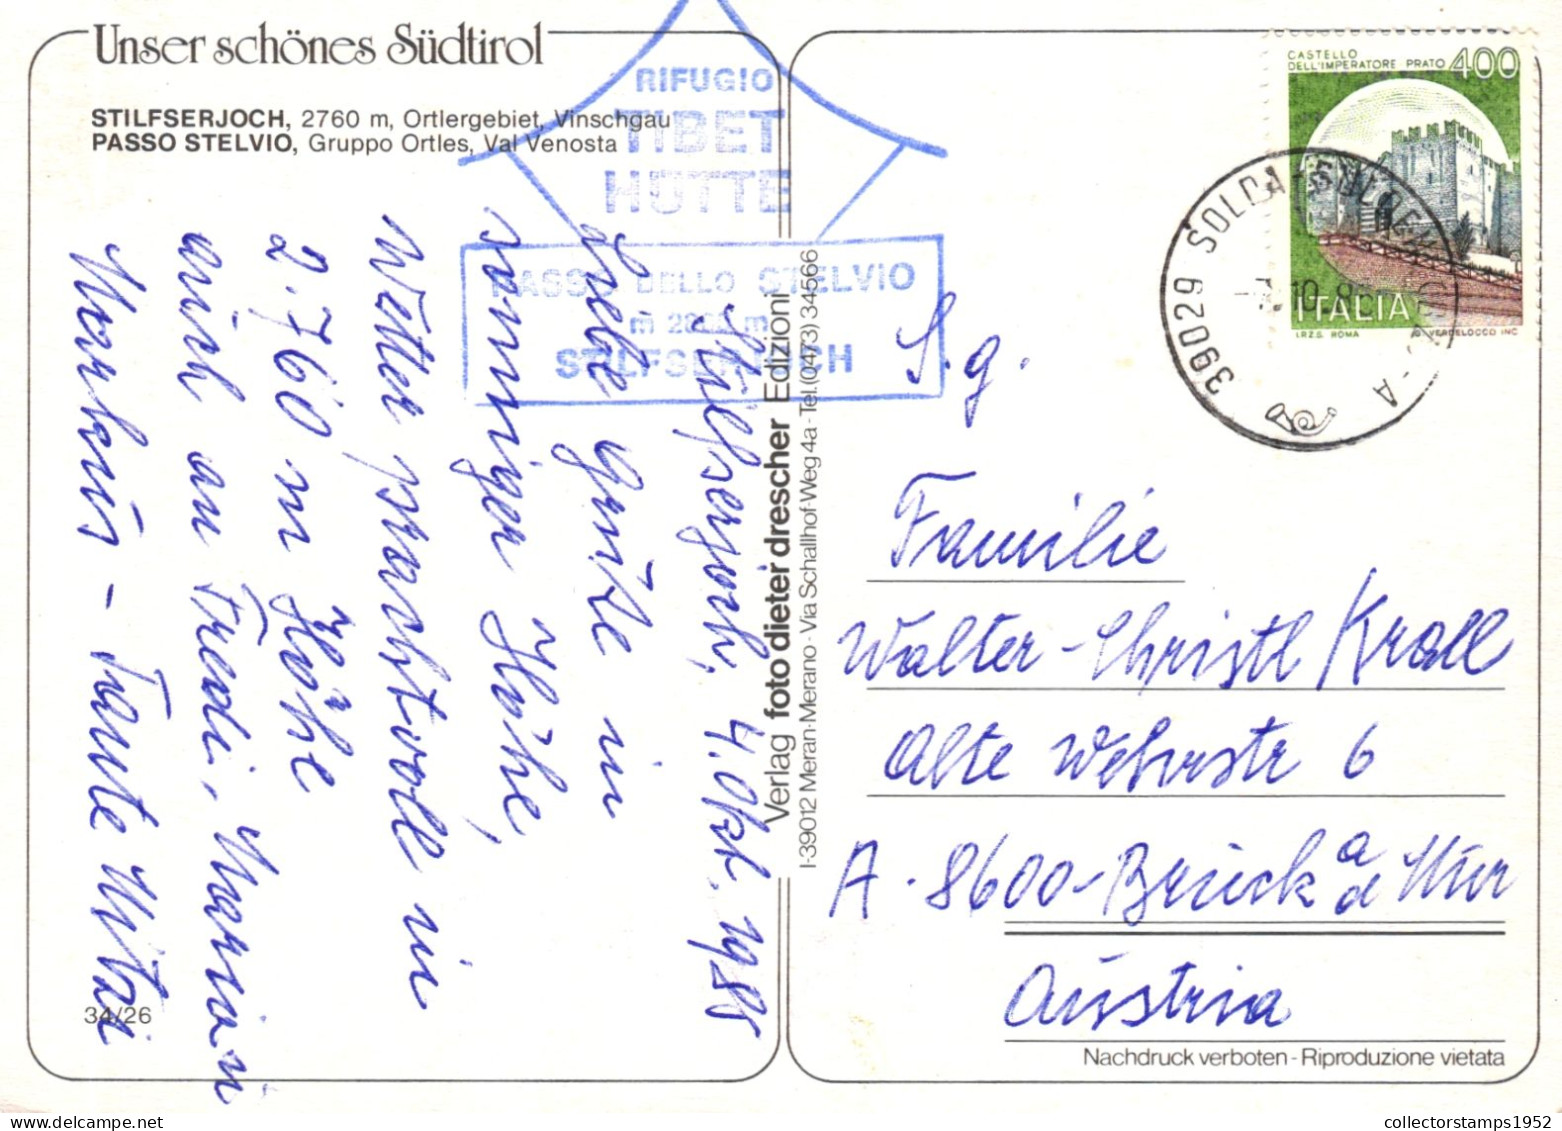 Unser schönes Südtirol
STILFSERJOCH, 2760 m, Ortlergebiet, Vinschgau
PASSO STELVIO, Gruppo Ortles, Val Venosta
RIFUGIO
TIBET
HÜTTE
PASSO DELLO STELVIO
m 2800 m
STILFSERJOCH
Stilfserjoch, 4. Okt. 1988
Liebe Grüße in
sonniger Höhe,
Wetter prachtvoll in
2.760 m Höhe
auch an Fredi,
Markus - Tante Mitzi
34/26
Verlag foto dieter drescher Edizioni
I-39012 Meran-Merano · Via Schallhof-Weg 4a · Tel. (0473) 34566
CASTELLO
DELL'IMPERATORE PRATO 400
ITALIA
I.P.Z.S. ROMA VERDELOCCO INC.
39029 SOLDA-SULDEN
S.g.
Familie
Walter-Christl Krall
Alte Wehrstr 6
A-8600-Bruck a d Mur
Austria
Nachdruck verboten - Riproduzione vietata
collectorstamps1952